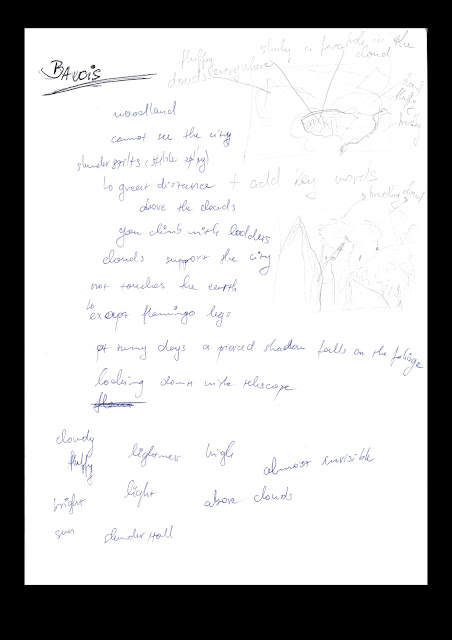 BAUCIS
fluffy clouds everywhere
study a form hole in the cloud
woodland
cannot see the city
slender stilts
↳ great distance + add key words
above the clouds
you climb with ladders
clouds support the city
not touches the earth
↳ except flamingo legs
at sunny days a pierced shadow falls on the foliage
looking down with telescope
cloudy
fluffy
lightness
high
almost invisible
bright
light
above clouds
sun